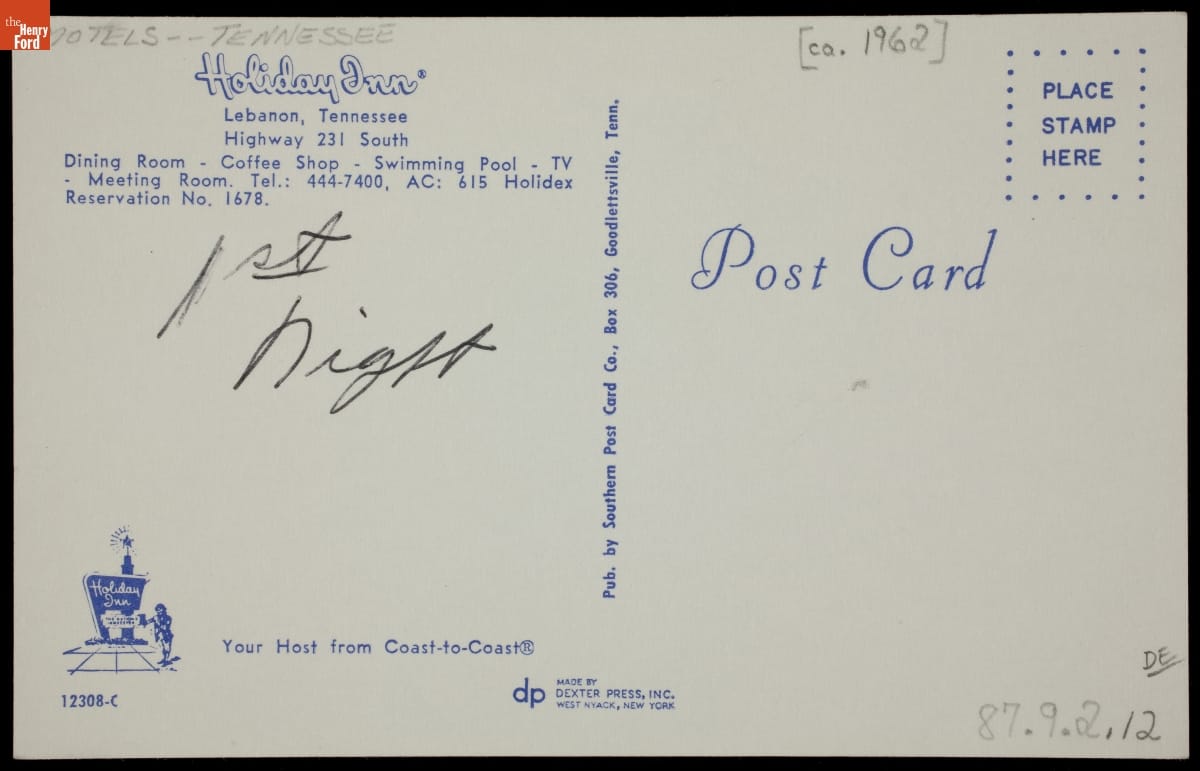 the
Henry
Ford
MOTELS -- TENNESSEE
[ca. 1962]
Holiday Inn®
Lebanon, Tennessee
Highway 231 South
Dining Room - Coffee Shop - Swimming Pool - TV
- Meeting Room. Tel.: 444-7400, AC: 615 Holidex
Reservation No. 1678.
1st
night
Holiday
Inn
Your Host from Coast-to-Coast®
12308-C
Pub. by Southern Post Card Co., Box 306, Goodlettsville, Tenn.
dp
MADE BY
DEXTER PRESS, INC.
WEST NYACK, NEW YORK
PLACE
STAMP
HERE
Post Card
DE
87.9.2.12